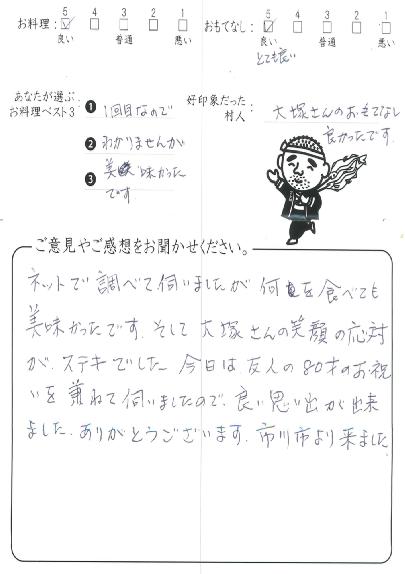 お料理： 5 4 3 2 1 おもてなし： 5 4 3 2 1
良い 普通 悪い 良い 普通 悪い
とても良い
あなたが選ぶ お料理ベスト3
❶ 1回目なので
❷ わかりませんが
❸ 美味かった
です
好印象だった村人：
大塚さんのおもてなし
良かったです。
ご意見やご感想をお聞かせください。
ネットで調べて伺いましたが 何を食べても
美味かったです。そして 大塚さんの笑顔の応対
が、ステキでした 今日は友人の80才のお祝
いを兼ねて伺いましたので、良い思い出が出来
ました。ありがとうございます。市川市より来ました